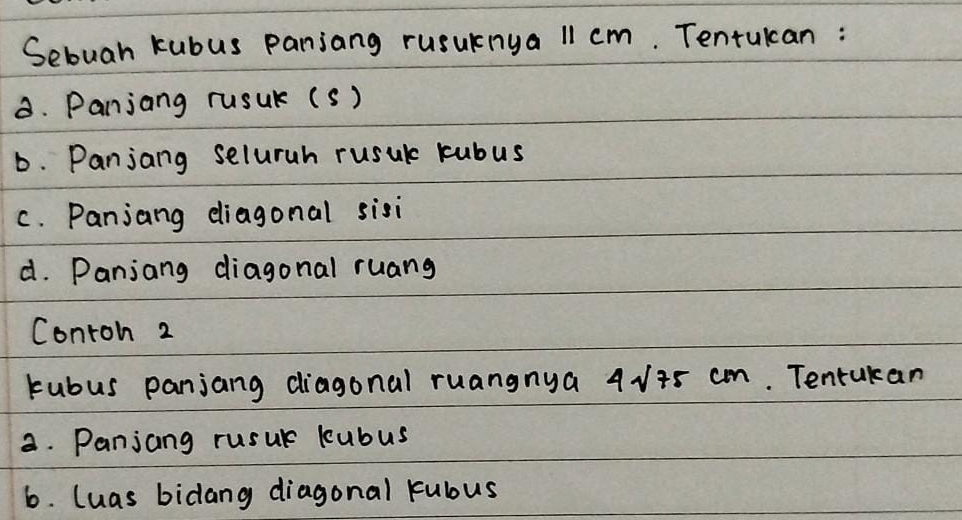 Sebuah kubus panjang rusuknya 11 cm. Tentukan :
a. Panjang rusuk (s)
b. Panjang seluruh rusuk kubus
c. Panjang diagonal sisi
d. Panjang diagonal ruang
Contoh 2
kubus panjang diagonal ruangnya 4√75 cm. Tentukan
a. Panjang rusuk kubus
b. luas bidang diagonal kubus